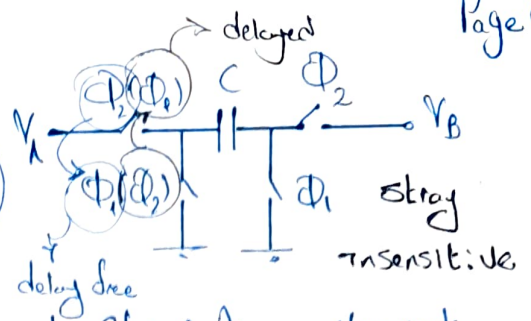 Page
delayed
Φ₂(Φ₁) C Φ₂
V_A V_B
Φ₁(Φ₂) Φ₁ stray
insensitive
delay free